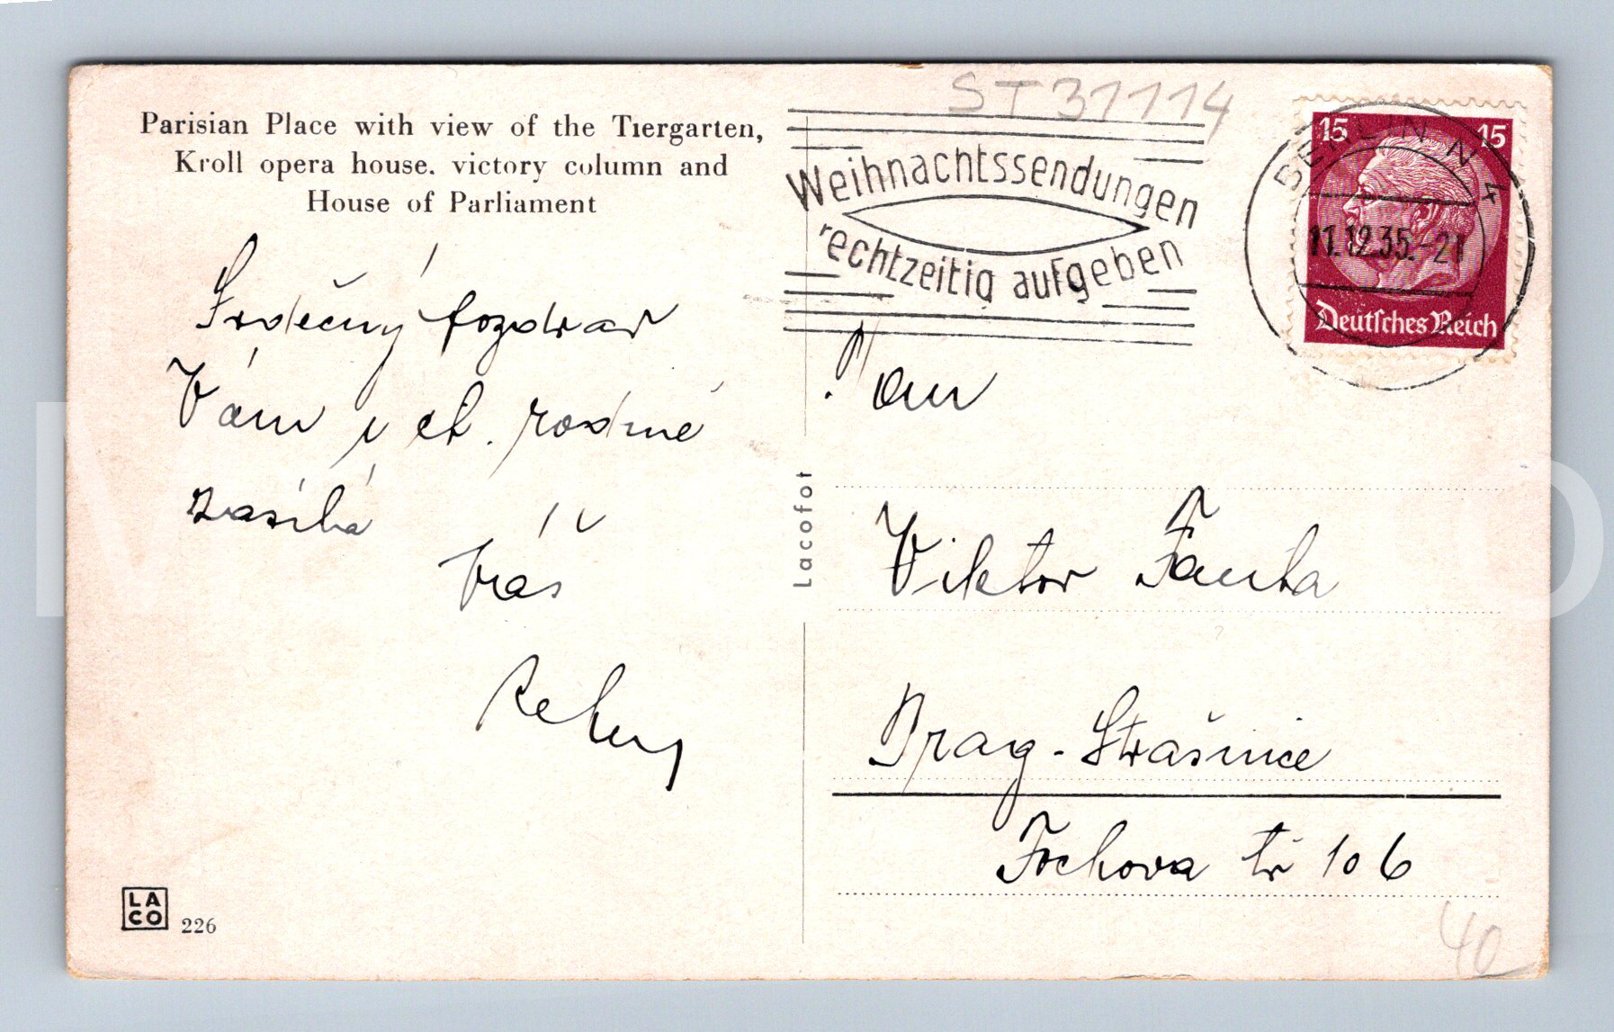 Parisian Place with view of the Tiergarten,
Kroll opera house. victory column and
House of Parliament
Srdečný pozdrav
Vám i ct. rodině
zasílá
Váš
LA
CO
226
Lacofot
ST 31114
Weihnachtssendungen
rechtzeitig aufgeben
BERLIN N 4
11.12.35.-21
15 15
Deutsches Reich
Pan
Viktor Fanta
Prag-Strašnice
Fochova tř 106
40